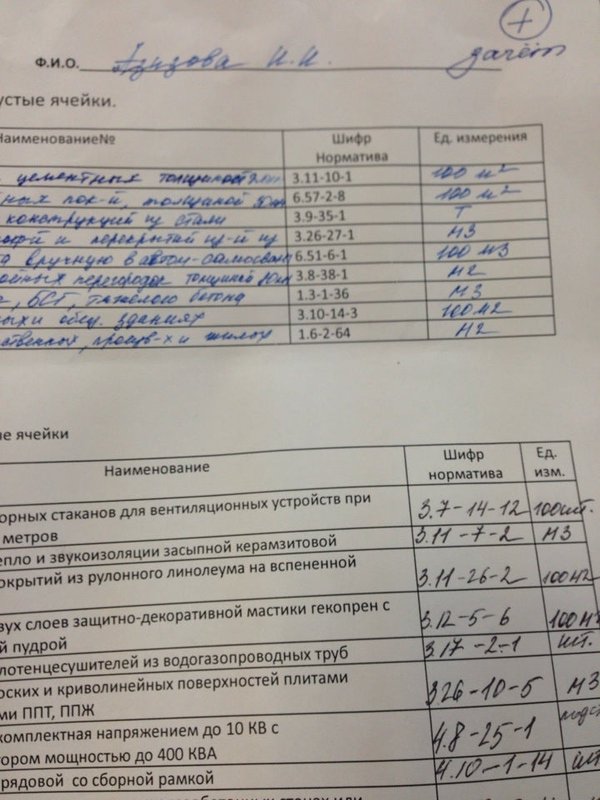 +
Ф.И.О. Азизова Н.Н. зачёт
устые ячейки.
Наименование№ Шифр Норматива Ед. измерения
цементных толщиной 3.11-10-1 100 м²
ных пок-й, толщиной 6.57-2-8 100 м²
конструкций из стали 3.9-35-1 Т
и перекрытий из-й из 3.26-27-1 М3
вручную в автом-самосвал 6.51-6-1 100 м3
перегородок толщиной 3.8-38-1 М2
БСГ, тяжёлого бетона 1.3-1-36 М3
зданиях 3.10-14-3 100м2
ственных, и жилых 1.6-2-64 М2
ые ячейки
Наименование Шифр норматива Ед. изм.
орных стаканов для вентиляционных устройств при 3.7-14-12 100шт.
метров
епло и звукоизоляции засыпной керамзитовой 3.11-7-2 М3
окрытий из рулонного линолеума на вспененной 3.11-26-2 100м2
вух слоев защитно-декоративной мастики гекопрен с 3.12-5-6 100м2
й пудрой
лотенцесушителей из водогазопроводных труб 3.17-2-1 шт.
рских и криволинейных поверхностей плитами 3.26-10-5 М3
ми ППТ, ППЖ
комплектная напряжением до 10 КВ с 4.8-25-1
тором мощностью до 400 КВА
рядовой со сборной рамкой 4.10-1-14 шт.